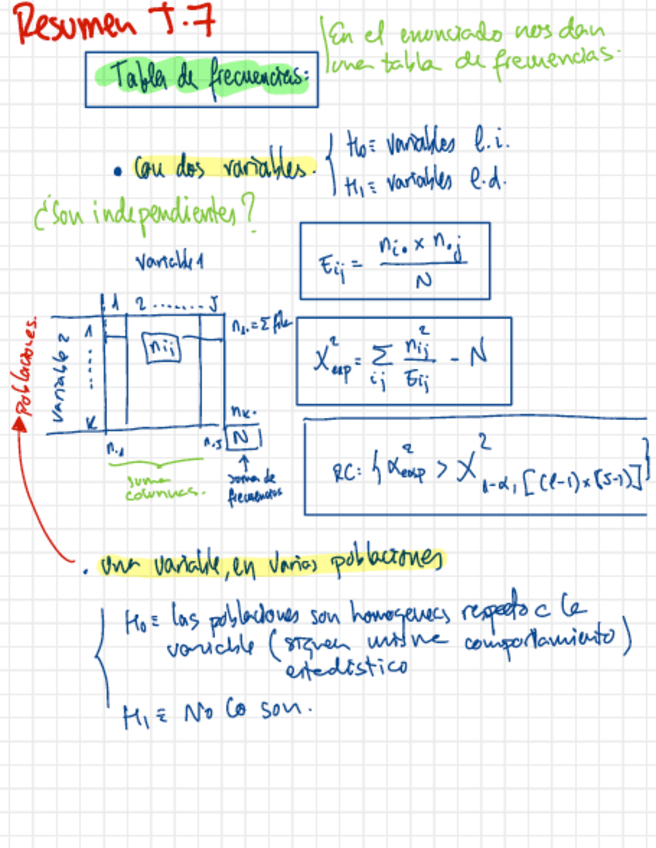 Resumen T.7
En el enunciado nos dan
una tabla de frecuencias.
Tabla de frecuencias:
• Con dos variables.
H₀ ≡ variables l.i.
H₁ ≡ variables l.d.
¿Son independientes?
variable 1
1 2 ....... J
variable 2
1
K
nᵢⱼ
n₁. = Σ filas
nₖ.
n.₁
n.J
N
suma columnas.
suma de frecuencias
poblaciones.
Eᵢⱼ = nᵢ. × n.ⱼ / N
X²exp = Σᵢⱼ n²ᵢⱼ / Eᵢⱼ - N
RC: { X²exp > X²₁₋α, [(k-1)×(J-1)] }
• una variable, en varias poblaciones
H₀ ≡ las poblaciones son homogeneas respecto a la
variable (siguen mismo comportamiento)
estadístico
H₁ ≡ No lo son.